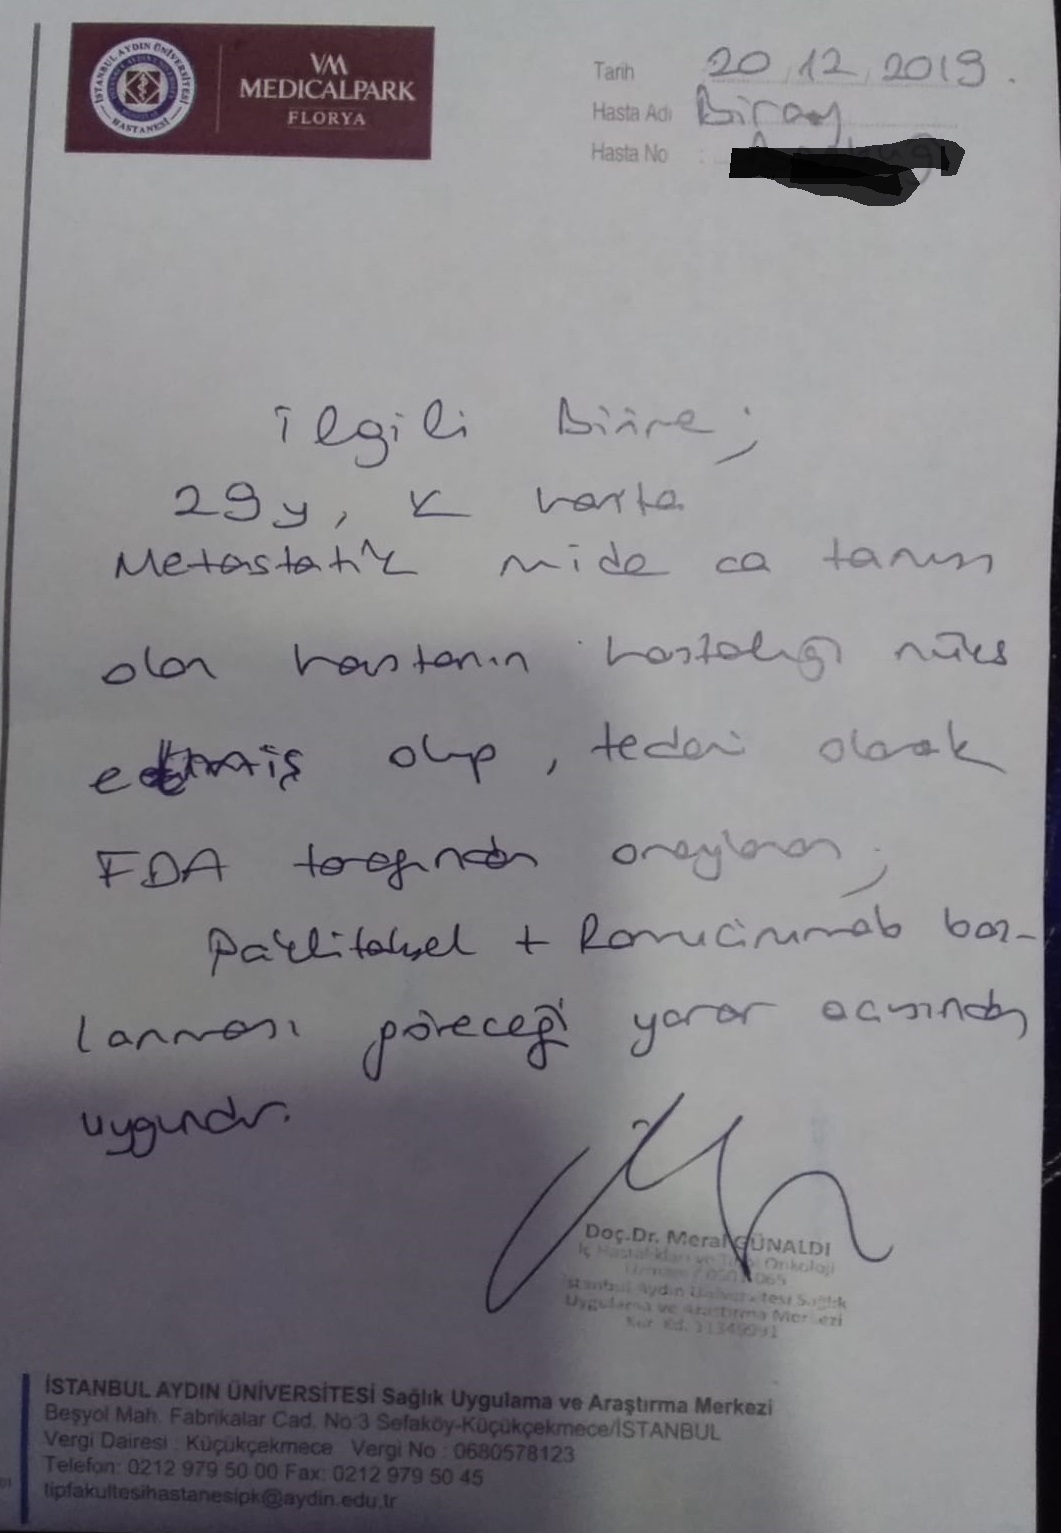 İSTANBUL AYDIN ÜNİVERSİTESİ
HASTANESİ
VM
MEDICALPARK
FLORYA
Tarih 20.12.2019.
Hasta Adı Biray
Hasta No :
İlgili Birime;
29y, K hasta
Metastatik mide ca tanısı
olan hastanın hastalığı nüks
etmiş olup, tedavi olarak
FDA tarafından onaylanan;
Paklitaksel + Ramucirumab baş-
lanması göreceği yarar açısından
uygundur.
Doç.Dr. Meral GÜNALDI
İç Hastalıkları ve Tıbbi Onkoloji
İstanbul Aydın Üniversitesi Sağlık
Uygulama ve Araştırma Merkezi
İSTANBUL AYDIN ÜNİVERSİTESİ Sağlık Uygulama ve Araştırma Merkezi
Beşyol Mah. Fabrikalar Cad. No:3 Sefaköy-Küçükçekmece/İSTANBUL
Vergi Dairesi : Küçükçekmece Vergi No : 0680578123
Telefon: 0212 979 50 00 Fax: 0212 979 50 45
tipfakultesihastanesipk@aydin.edu.tr